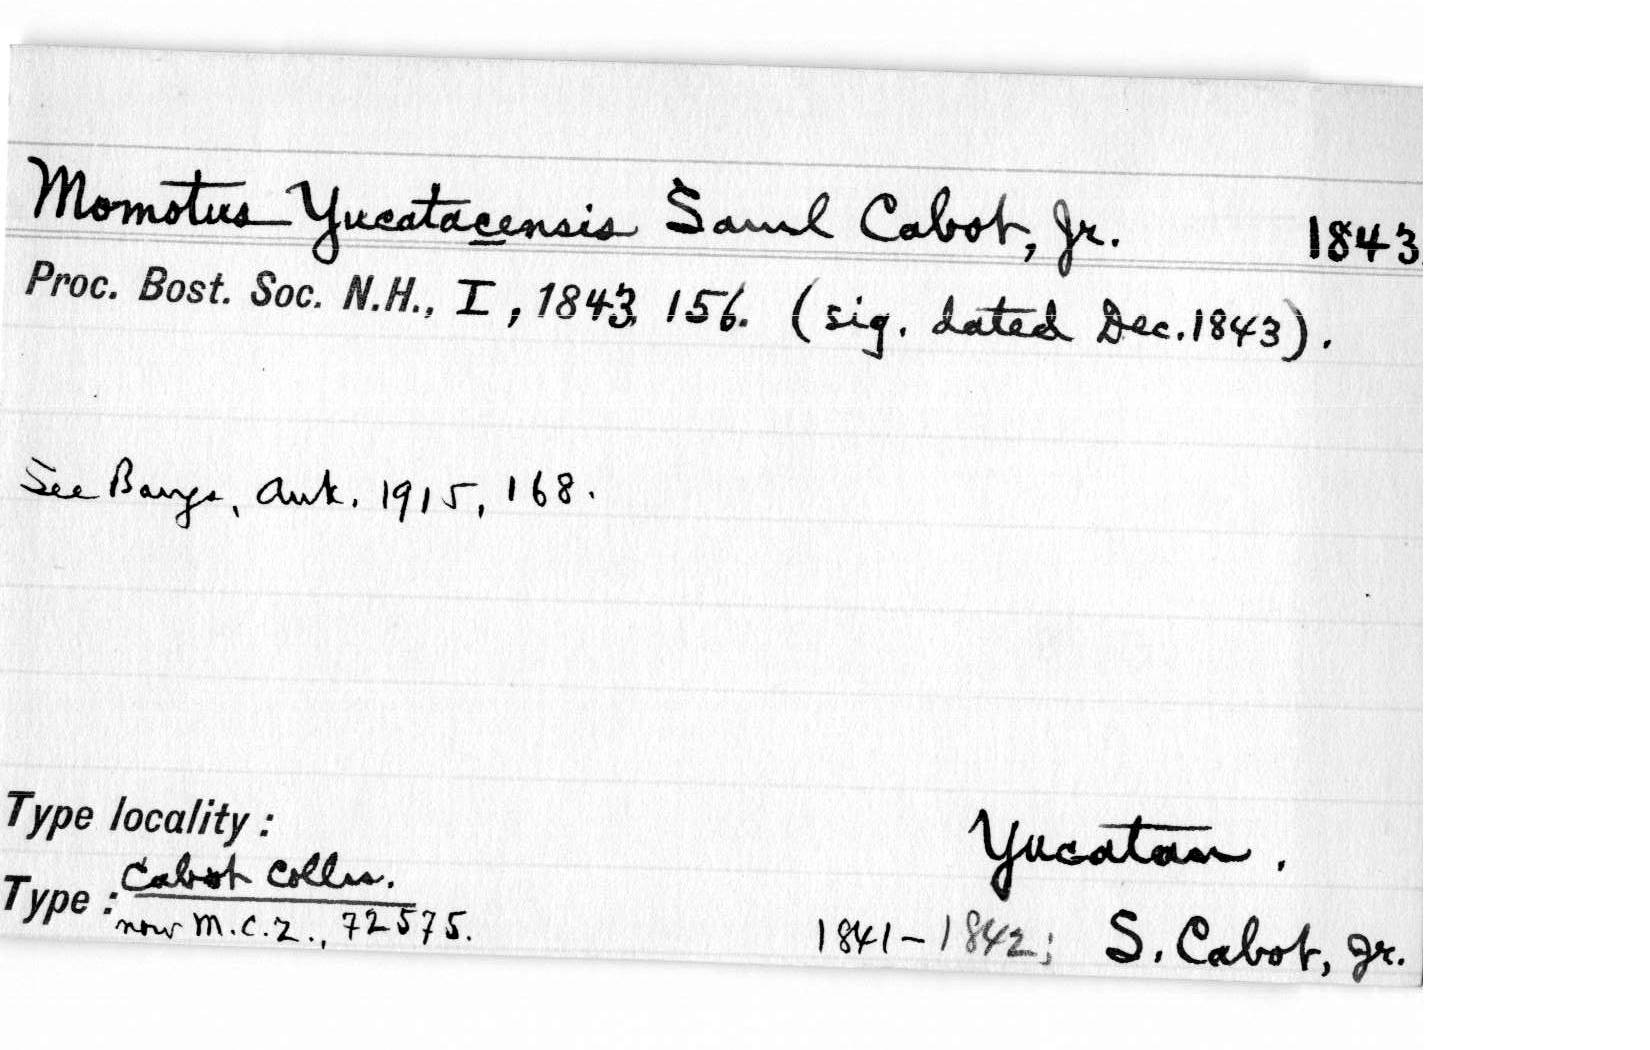 Momotus Yucatacensis Saml Cabot, Jr. 1843
Proc. Bost. Soc. N.H., I, 1843, 156. (sig. dated Dec. 1843).
See Bangs, Auk. 1915, 168.
Type locality: Yucatan.
Type: Cabot Colln.
now M.C.Z., 72575. 1841-1842; S. Cabot, Jr.